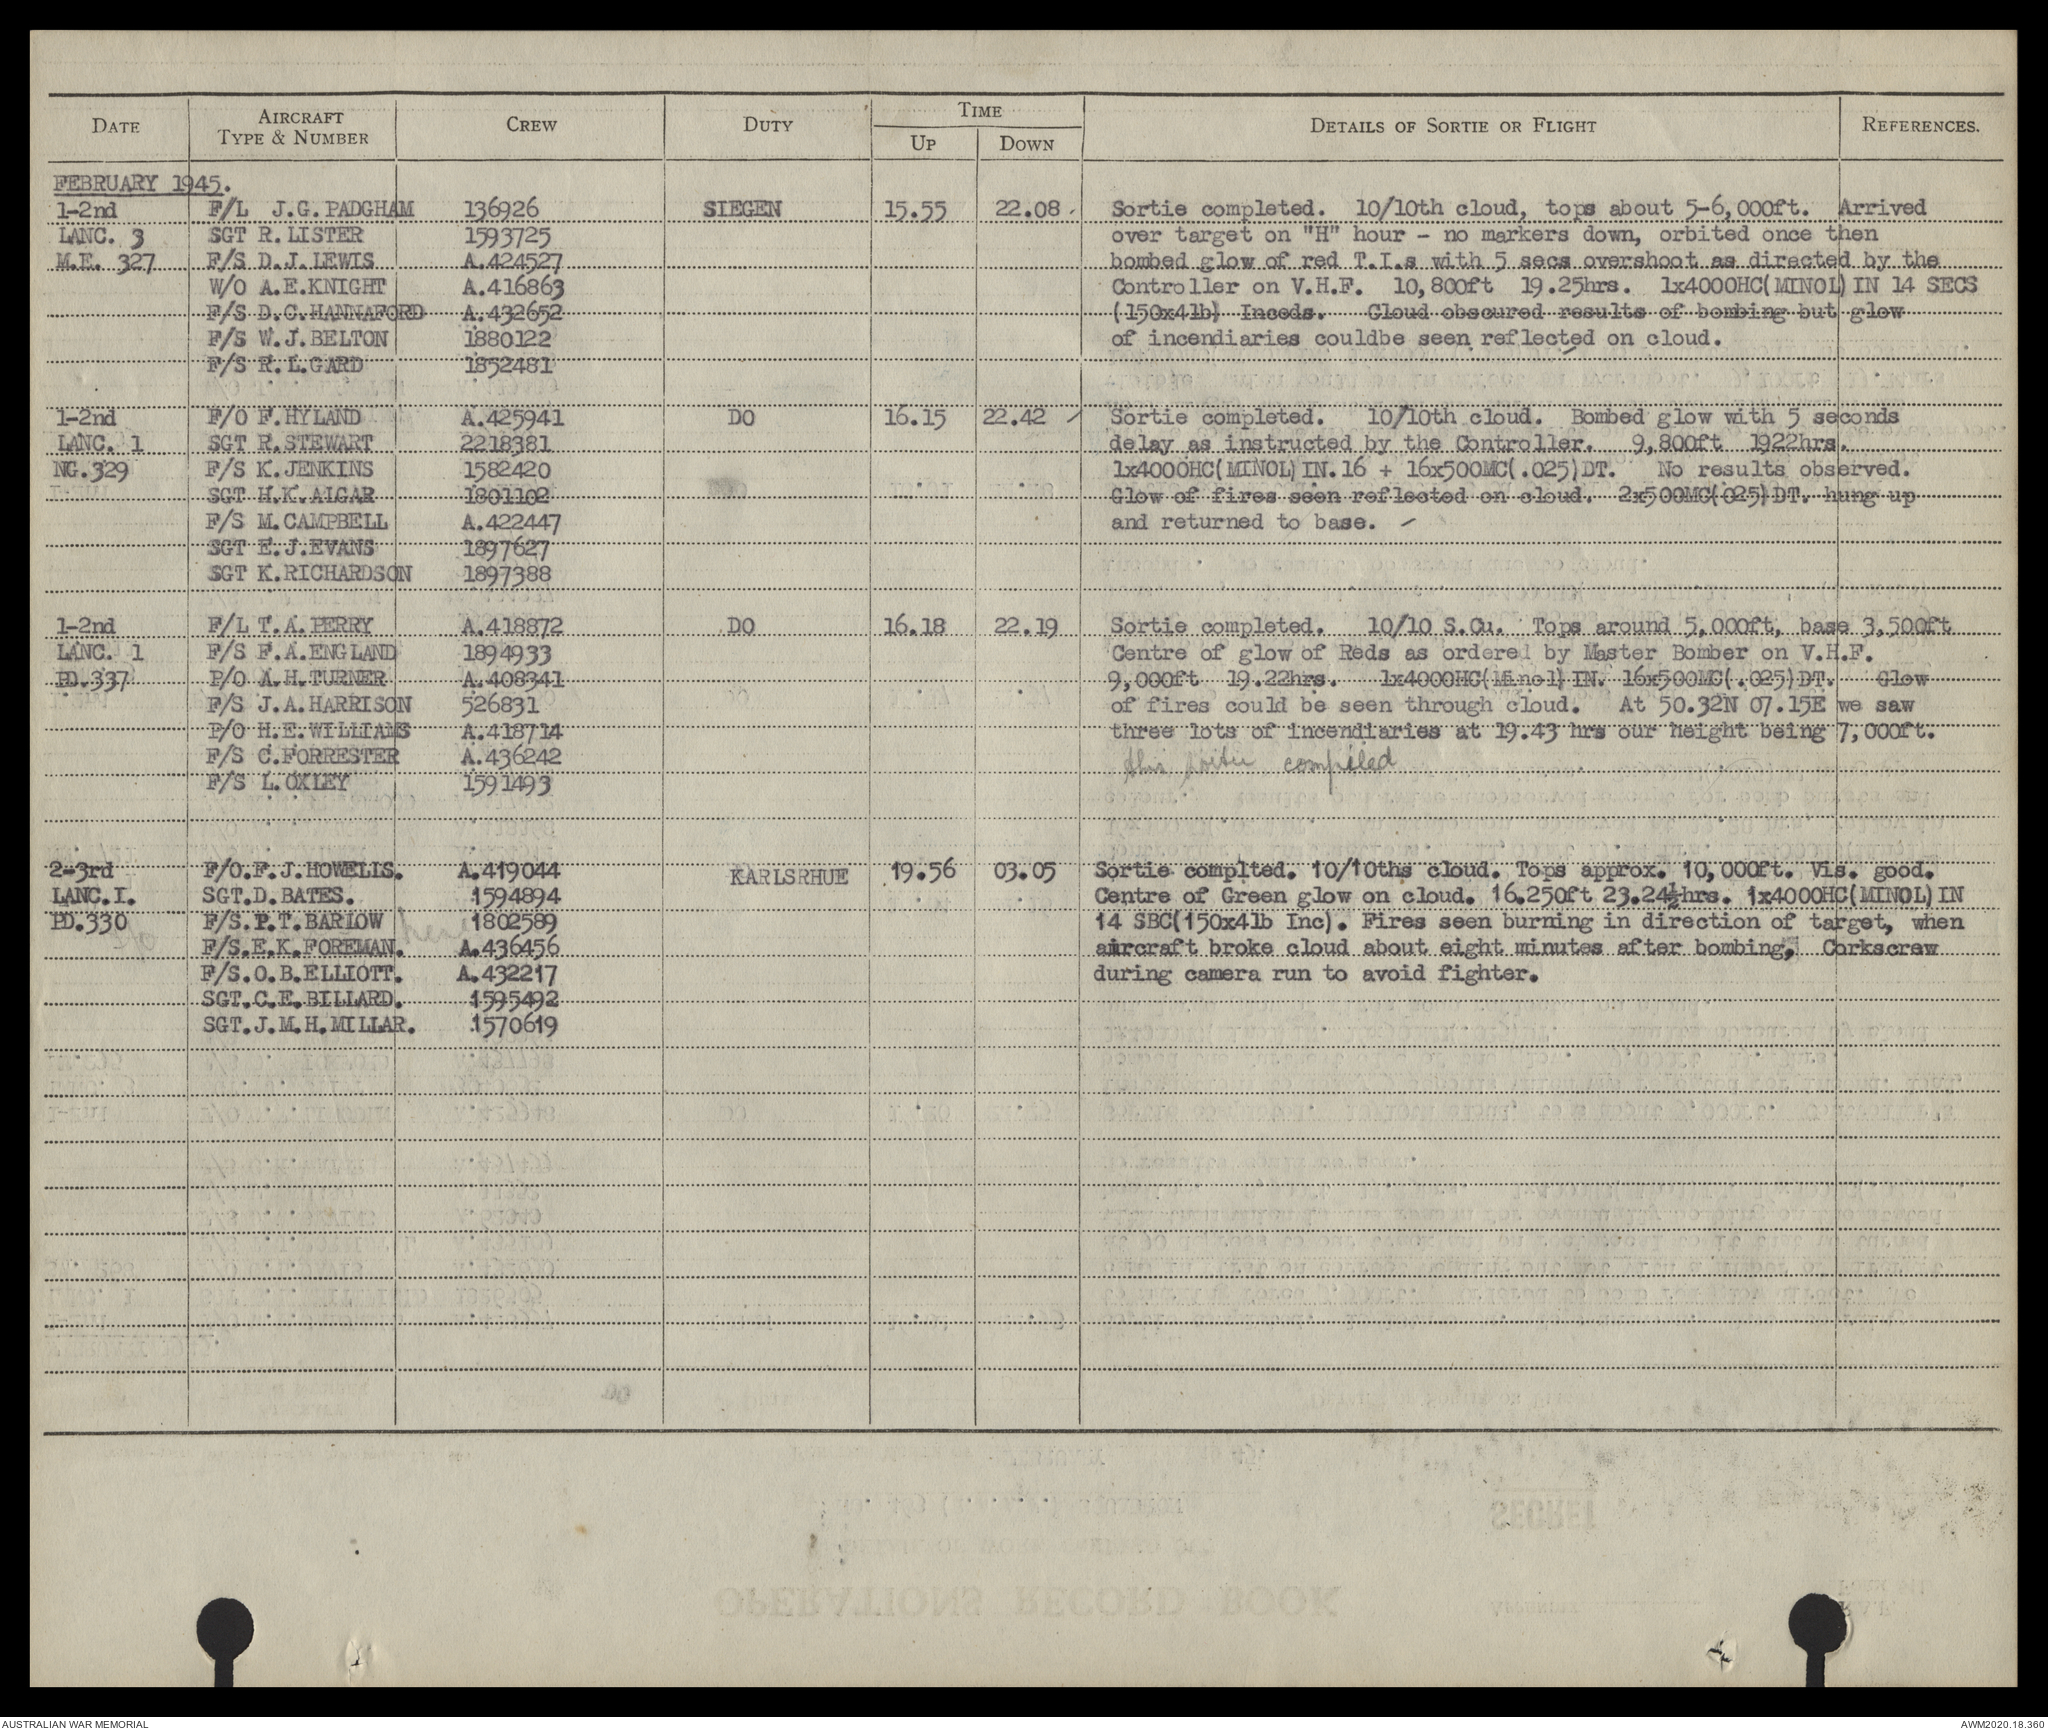 DATE AIRCRAFT TYPE & NUMBER CREW DUTY TIME UP DOWN DETAILS OF SORTIE OR FLIGHT REFERENCES.
FEBRUARY 1945.
1-2nd F/L J.G.PADGHAM 136926 SIEGEN 15.55 22.08 Sortie completed. 10/10th cloud, tops about 5-6,000ft. Arrived
LANC. 3 SGT R.LISTER 1593725 over target on "H" hour - no markers down, orbited once then
M.E. 327 F/S D.J.LEWIS A.424527 bombed glow of red T.I.s with 5 secs overshoot as directed by the
W/O A.E.KNIGHT A.416863 Controller on V.H.F. 10,800ft 19.25hrs. 1x4000HC(MINOL)IN 14 SECS
F/S D.C.HANNAFORD A.432652 (150x4lb) Inceds. Cloud obscured results of bombing but glow
F/S W.J.BELTON 1880122 of incendiaries couldbe seen reflected on cloud.
F/S R.L.GARD 1852481
1-2nd F/O F.HYLAND A.425941 DO 16.15 22.42 Sortie completed. 10/10th cloud. Bombed glow with 5 seconds
LANC. 1 SGT R.STEWART 2218381 delay as instructed by the Controller. 9,800ft 1922hrs.
NG.329 F/S K.JENKINS 1582420 1x4000HC(MINOL)IN.16 + 16x500MC(.025)DT. No results observed.
SGT H.K.ALGAR 1801102 Glow of fires seen reflected on cloud. 2x500MC(025)DT. hung up
F/S M.CAMPBELL A.422447 and returned to base.
SGT E.J.EVANS 1897627
SGT K.RICHARDSON 1897388
1-2nd F/L T.A.PERRY A.418872 DO 16.18 22.19 Sortie completed. 10/10 S.Cu. Tops around 5,000ft, base 3,500ft
LANC. 1 F/S F.A.ENGLAND 1894933 Centre of glow of Reds as ordered by Master Bomber on V.H.F.
PD.337 P/O A.H.TURNER A.408341 9,000ft 19.22hrs. 1x4000HC(Minol)IN. 16x500MC(.025)DT. Glow
F/S J.A.HARRISON 526831 of fires could be seen through cloud. At 50.32N 07.15E we saw
P/O H.E.WILLIAMS A.418714 three lots of incendiaries at 19.43 hrs our height being 7,000ft.
F/S C.FORRESTER A.436242 this sortie compiled
F/S L.OXLEY 1591493
2-3rd F/O.F.J.HOWELLS. A.419044 KARLSRHUE 19.56 03.05 Sortie complted. 10/10ths cloud. Tops approx. 10,000ft. Vis. good.
LANC.I. SGT.D.BATES. 1594894 Centre of Green glow on cloud. 16.250ft 23.24½hrs. 1x4000HC(MINOL)IN
PD.330 F/S.P.T.BARLOW 1802589 14 SBC(150x4lb Inc). Fires seen burning in direction of target, when
F/S.E.K.FOREMAN. A.436456 aircraft broke cloud about eight minutes after bombing, Corkscrew
F/S.O.B.ELLIOTT. A.432217 during camera run to avoid fighter.
SGT.C.E.BILLARD. 1595492
SGT.J.M.H.MILLAR. 1570619
AUSTRALIAN WAR MEMORIAL AWM2020.18.360